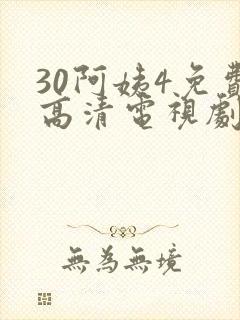 30阿姨4免費
高清電視劇
無為無境